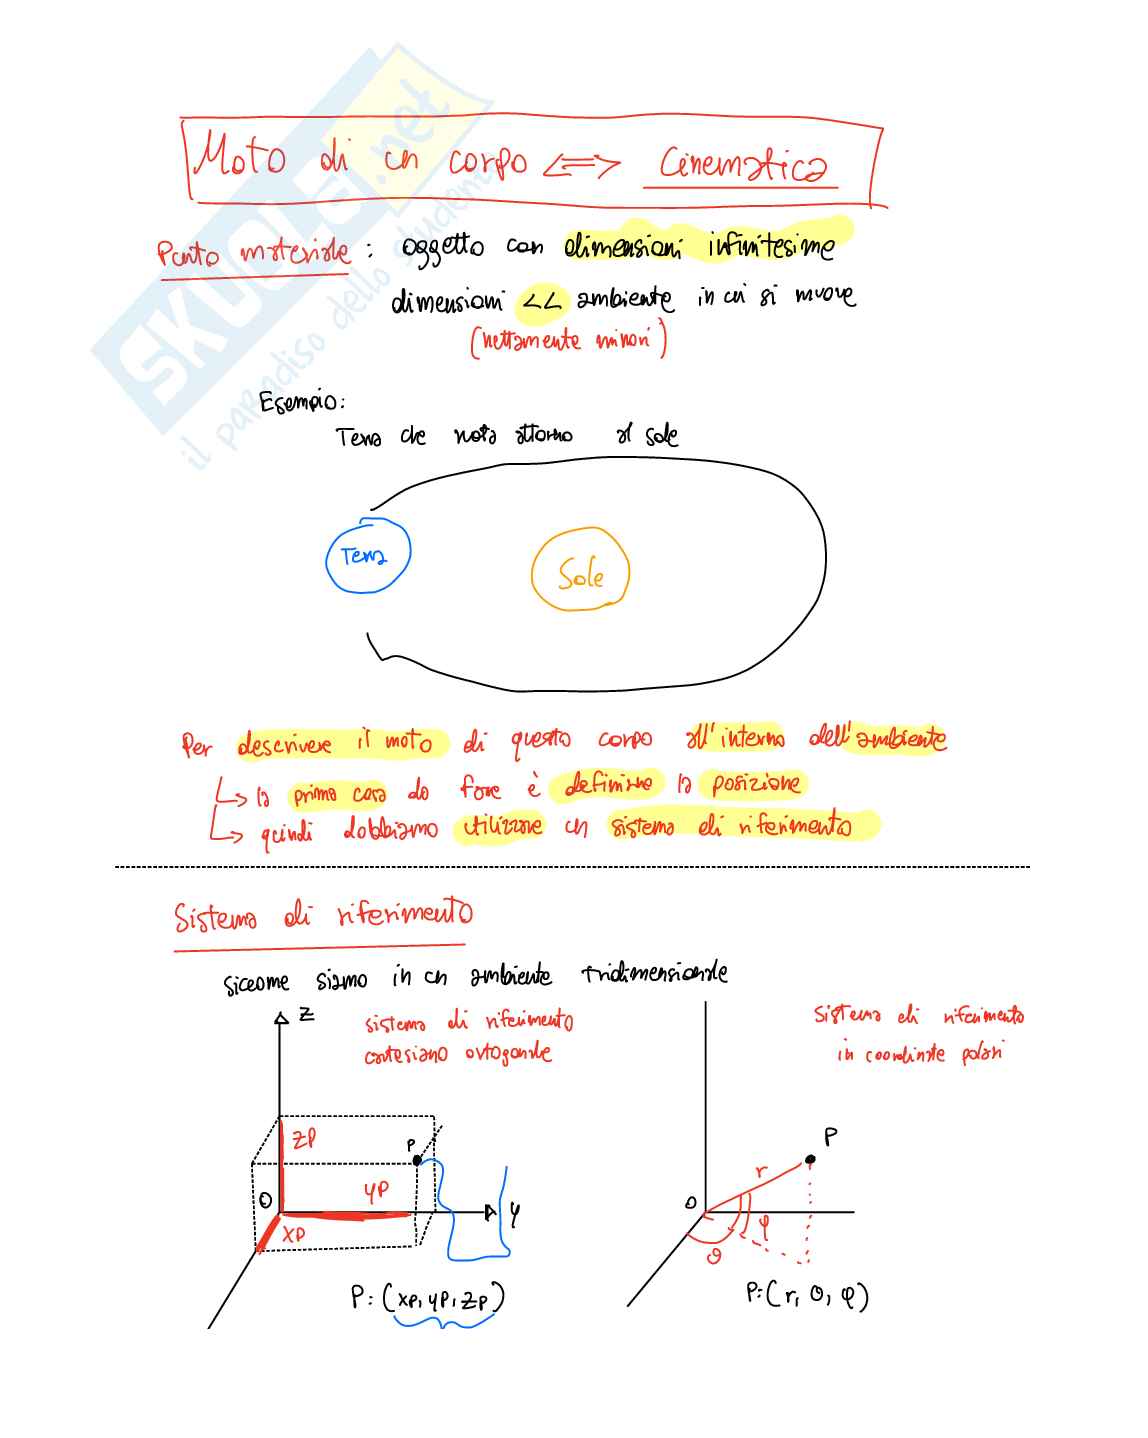 Moto di un corpo <=> Cinematica
Punto materiale : oggetto con dimensioni infinitesime
dimensioni << ambiente in cui si muove
(nettamente minori)
Esempio:
Terra che ruota attorno al sole
Terra
Sole
Per descrivere il moto di questo corpo all'interno dell'ambiente
↳ la prima cosa da fare è definire la posizione
↳ quindi dobbiamo utilizzare un sistema di riferimento
Sistema di riferimento
siccome siamo in un ambiente tridimensionale
z
sistema di riferimento
cartesiano ortogonale
zp
P
yp
O
xp
y
P: (xp, yp, zp)
Sistema di riferimento
in coordinate polari
P
r
O
φ
θ
P:(r, θ, φ)
SKUOLA.net
il paradiso dello studente